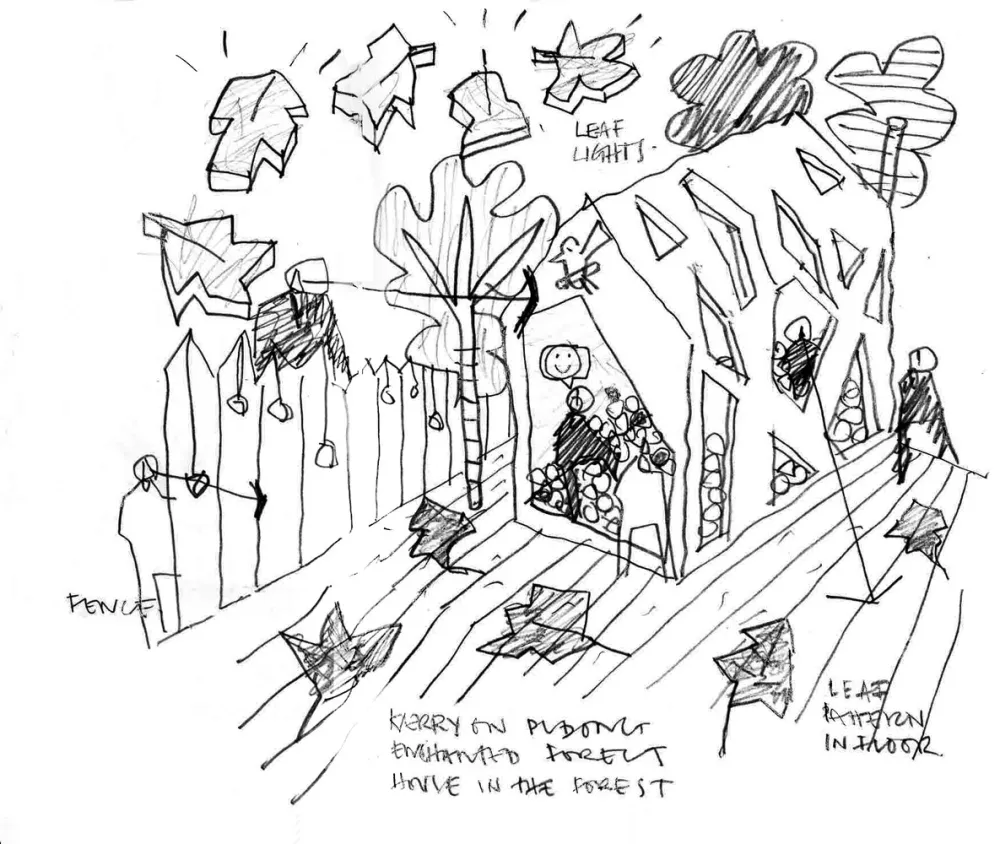 LEAF
LIGHTS
FENCE
LEAF
PATTERN
IN FLOOR
KERRY ON PUDONG
ENCHANTED FOREST
HOUSE IN THE FOREST